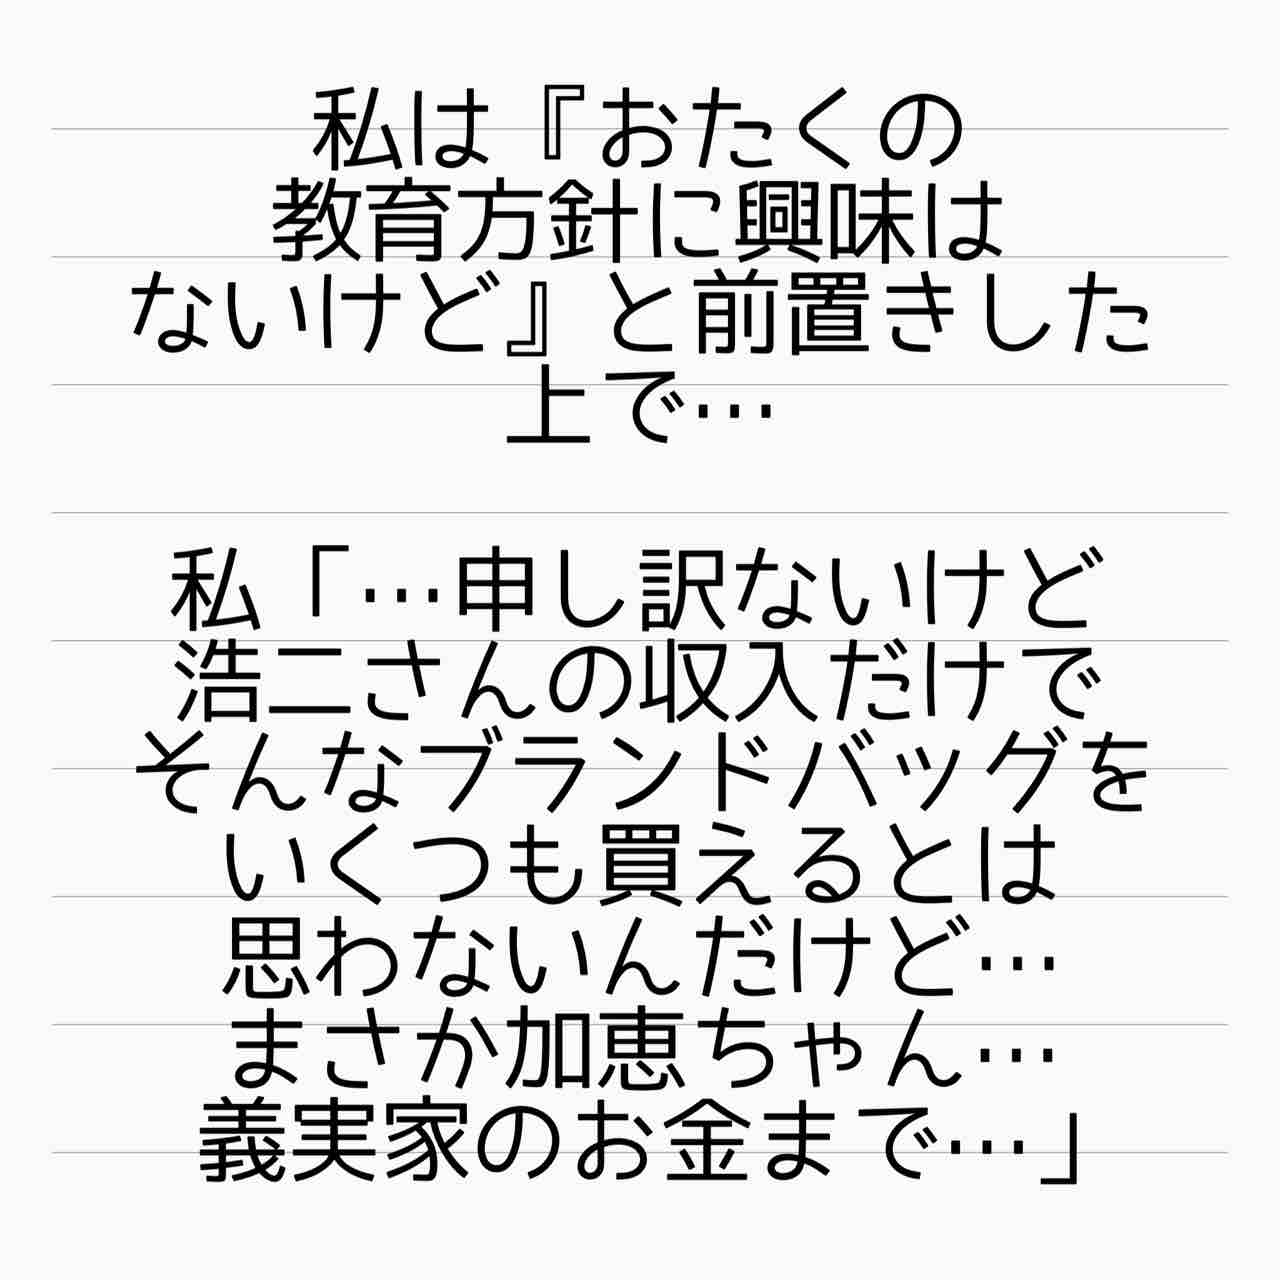 私は『おたくの
教育方針に興味は
ないけど』と前置きした
上で…
私「…申し訳ないけど
浩二さんの収入だけで
そんなブランドバッグを
いくつも買えるとは
思わないんだけど…
まさか加恵ちゃん…
義実家のお金まで…」